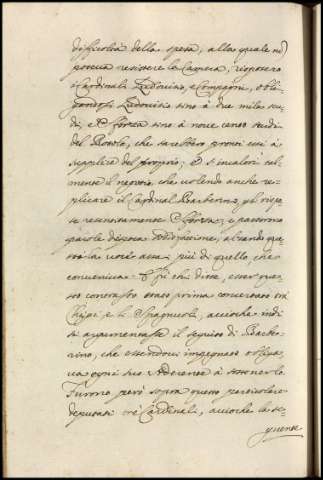 difficoltà della spesa, alla quale nō
poteva resistere la Camera, risposero
i Cardinali Ludovisio, e Compagni, oble-
gandosi Ludovisio sino à due mila scu-
di, e Sforza sino à nove cento scudi
del Rosolo, che sarebbero pronti essi à
supplire del proprio; e si incalorì tal-
mente il negotio che volendo anche re-
plicare il Cardinal Barberino gli rispo-
se risentitamente Sforza, e passorno
parole di poca sodisfatione, alzando que-
sto la voce assai più di quello, che
conveniva. E fù chi disse, esser que-
sto contrasto stato prima concertato trà
Chigi, e li Spagnuoli, accioche indi
si argumentasse il seguito di Barbe-
rino, che essendovi impegnato obliga-
va ogni suo Aderente à sostenerlo.
Furono però sopra questo particolare
deputati trè Cardinali, accioche la se-
guente